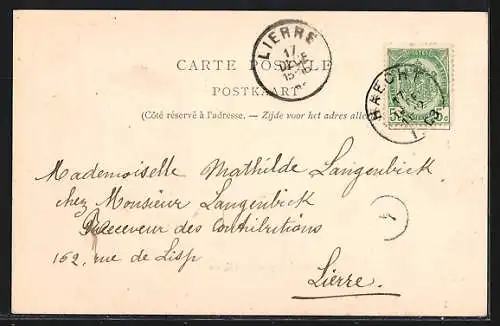 LIERRE
17
DECE
15-
CARTE POSTALE
POSTKAART
HAECHT
(Côté réservé à l'adresse. — Zijde voor het adres alleen
Mademoiselle Mathilde Langenbick
chez Monsieur Langenbick
Receveur des Contributions
162, rue de Lisp
Lierre.